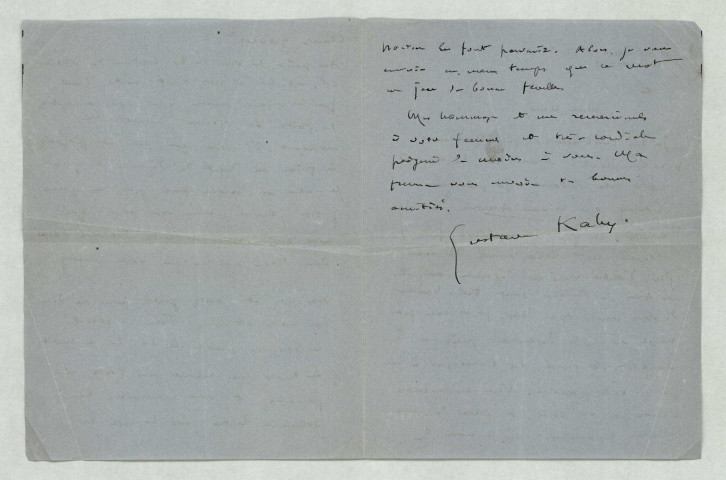 les font paraître. Alors, je vous
envoie en même temps que ce mot
un jeu de bonnes feuilles
Mes hommages et mes
à votre femme et très cordiale
poignée de mains à vous. Ma
femme vous envoie ses bonnes
amitiés.
Gustave Kahn.